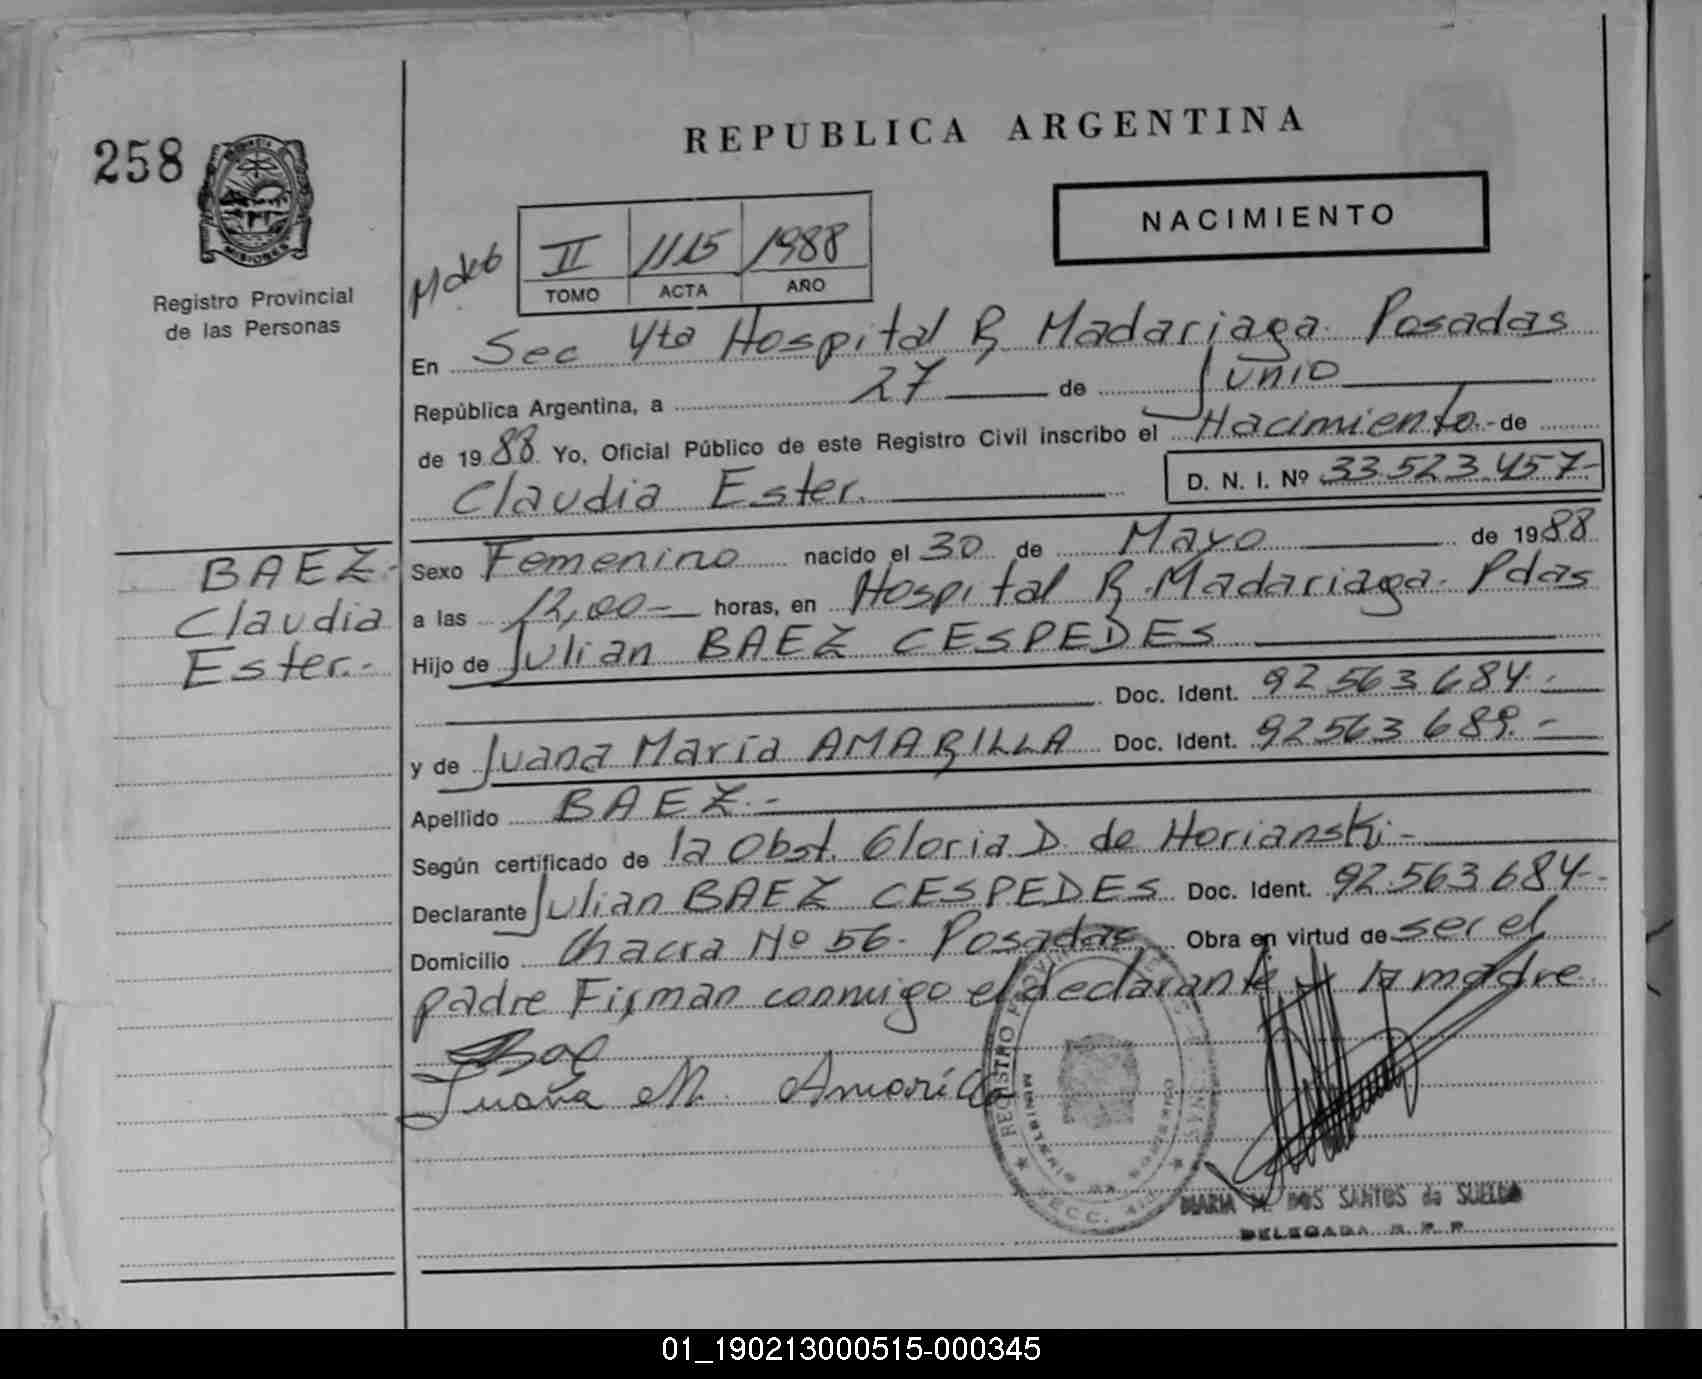 REPUBLICA ARGENTINA
258
MISIONES
Registro Provincial
de las Personas
NACIMIENTO
II 1115 1988
TOMO ACTA AÑO
En Sec 4ta Hospital R Madariaga Posadas
República Argentina, a 27 de Junio
de 1988 Yo, Oficial Público de este Registro Civil inscribo el Nacimiento.- de
Claudia Ester. D. N. I. Nº 33.523.457-
BAEZ-
Claudia
Ester.-
Sexo Femenino nacido el 30 de Mayo de 1988
a las 12,00- horas, en Hospital R. Madariaga. Pdas
Hijo de Julian BAEZ CESPEDES
Doc. Ident. 92563684.-
y de Juana María AMARILLA Doc. Ident. 92563689.-
Apellido BAEZ.-
Según certificado de la Obst. Gloria D. de Horianski-
Declarante Julian BAEZ CESPEDES Doc. Ident. 92563684-
Domicilio Chacra Nº 56- Posadas Obra en virtud de ser el
padre Firman conmigo el declarante y la madre
Juana M. Amarilla
REGISTRO
SECC.
MARIA M. DOS SANTOS de SUELDO
DELEGADA R. P. P.
01_190213000515-000345